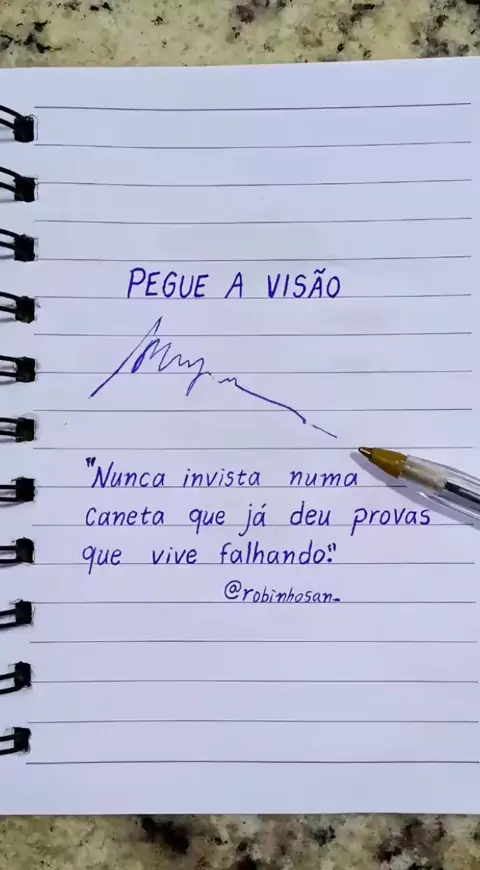 PEGUE A VISÃO
"Nunca invista numa
caneta que já deu provas
que vive falhando."
@robinhosan_